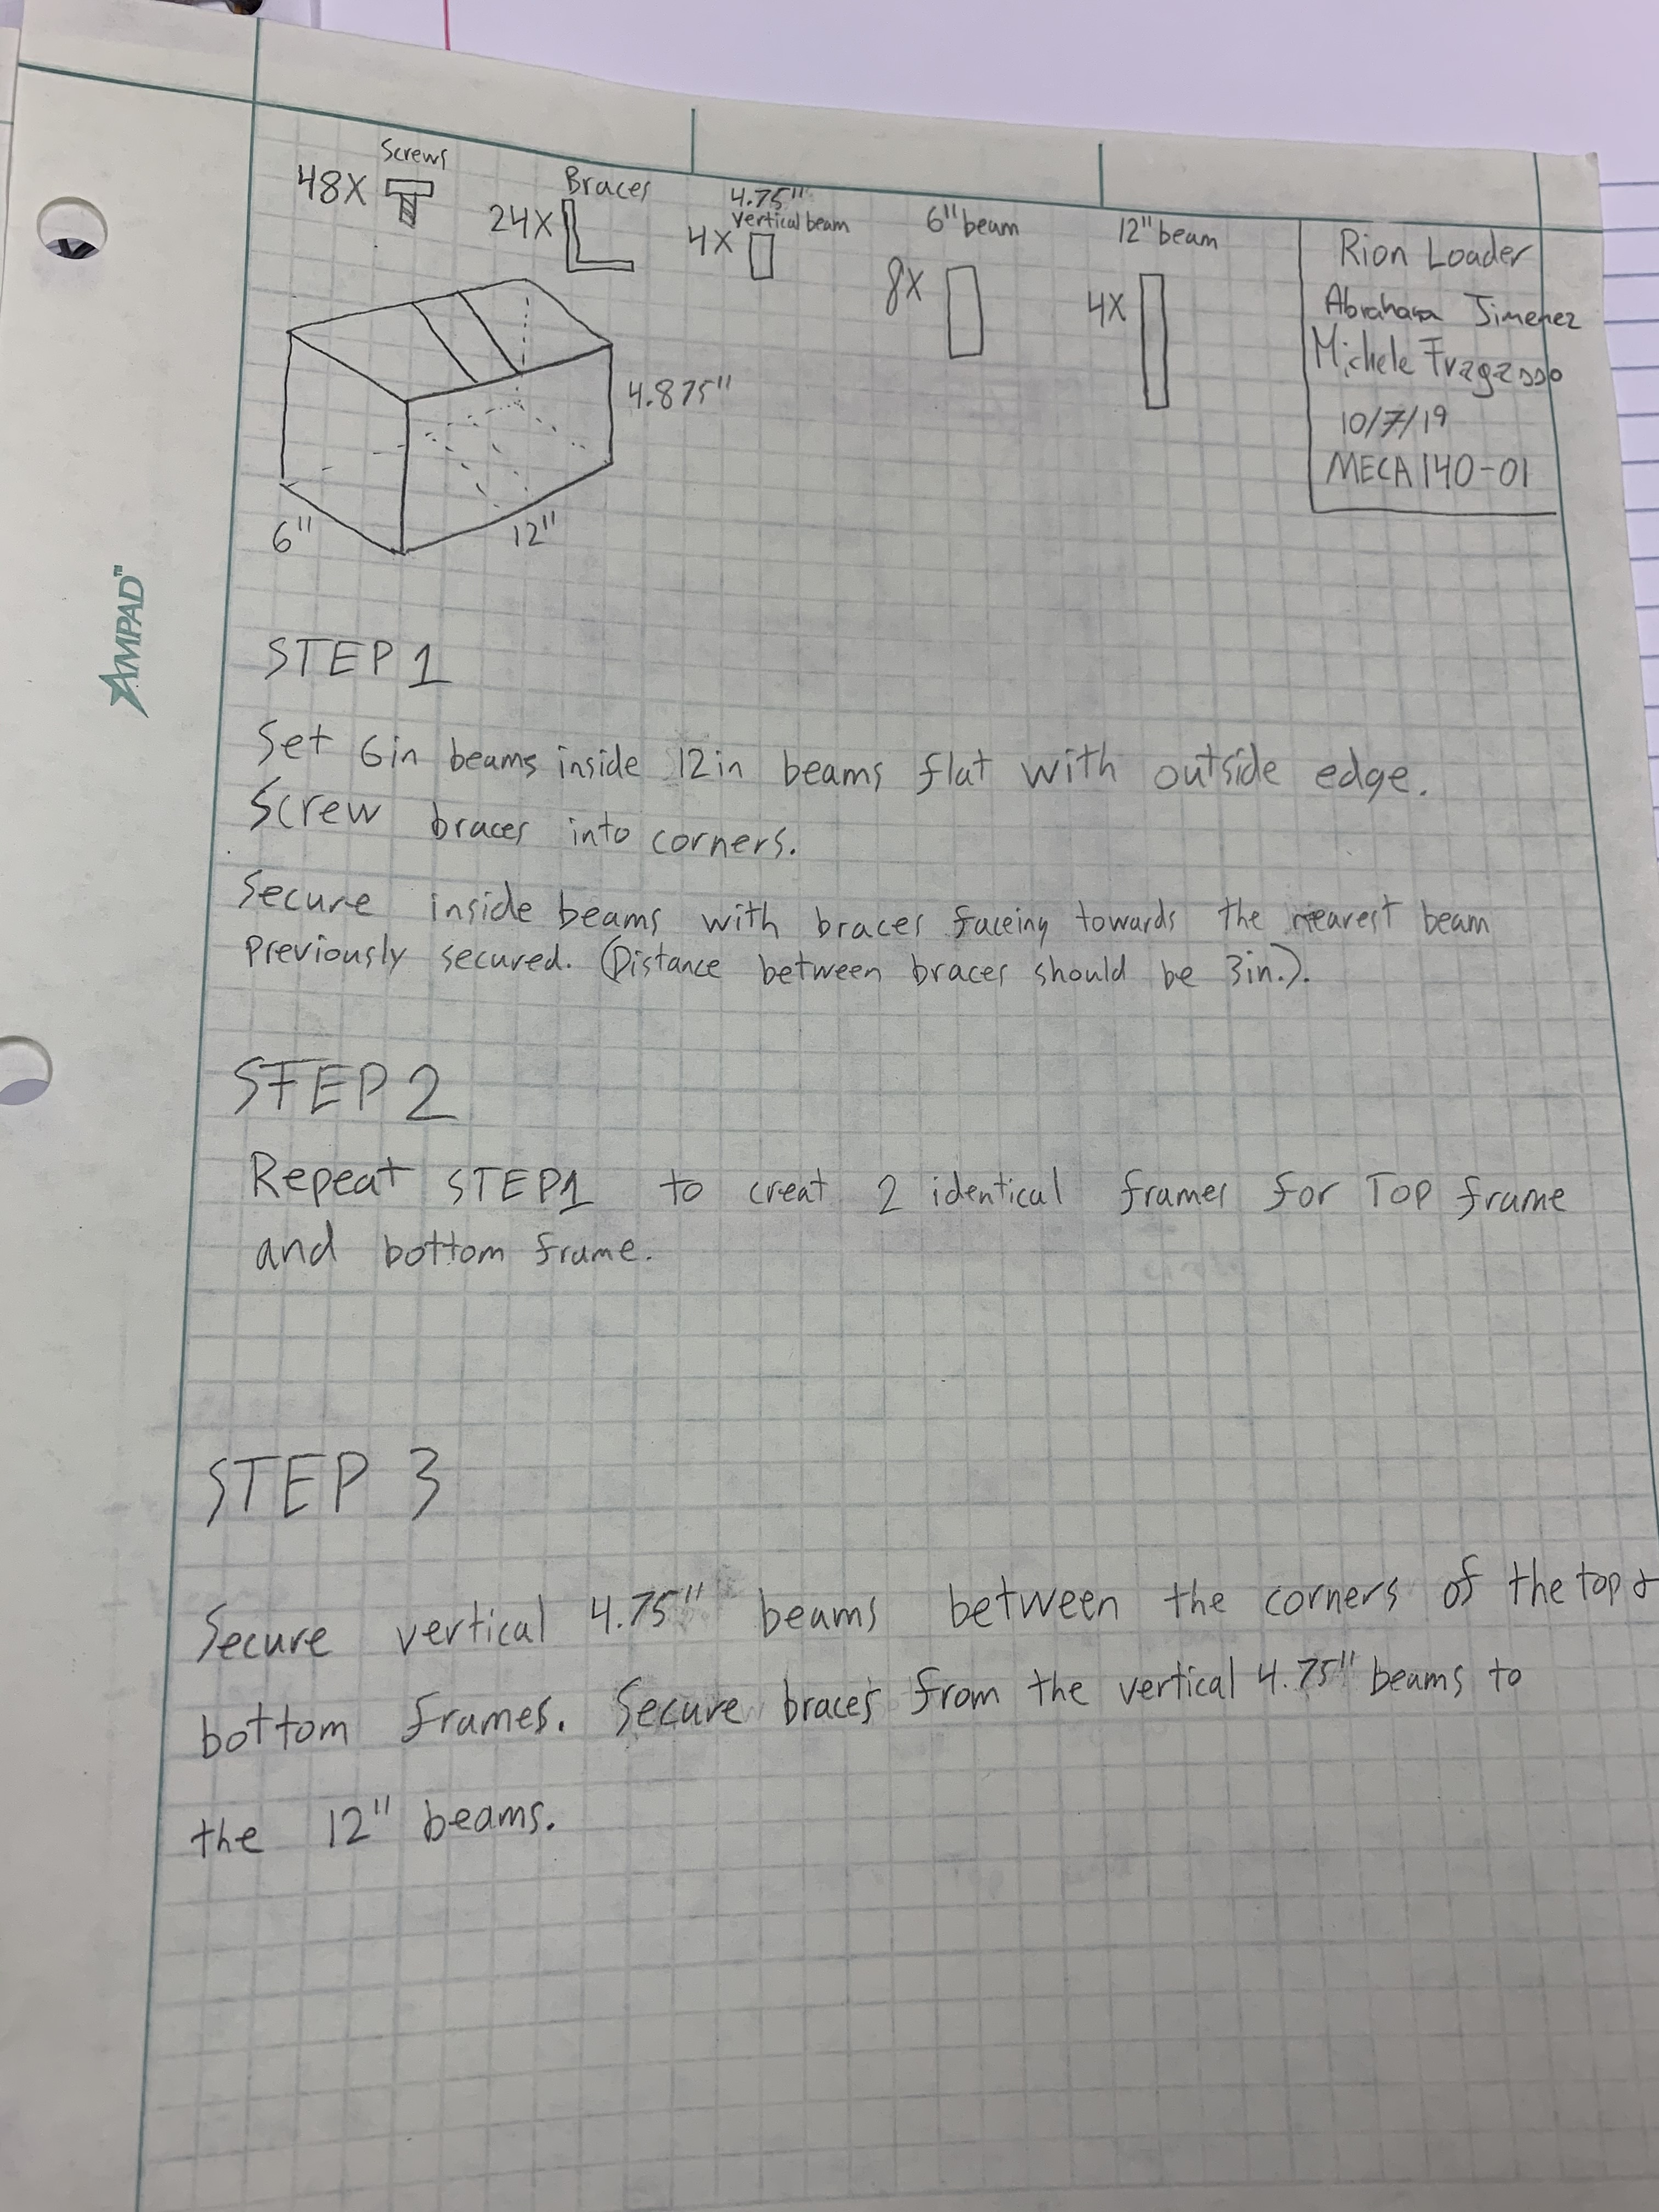 Screws
48X
Braces
24X
4.75"
vertical beam
4X
6" beam
8X
12" beam
4X
Rion Loader
Abraham Jimenez
Michele Fragasso
10/7/19
MECA 140-01
4.875"
6"
12"
AMPAD™
STEP 1
Set 6in beams inside 12in beams flat with outside edge.
Screw braces into corners.
Secure inside beams with braces faceing towards the nearest beam
previously secured. (Distance between braces should be 3in.).
STEP 2
Repeat STEP1 to creat 2 identical frames for Top frame
and bottom frame.
STEP 3
Secure vertical 4.75" beams between the corners of the top &
bottom frames. Secure braces from the vertical 4.75" beams to
the 12" beams.